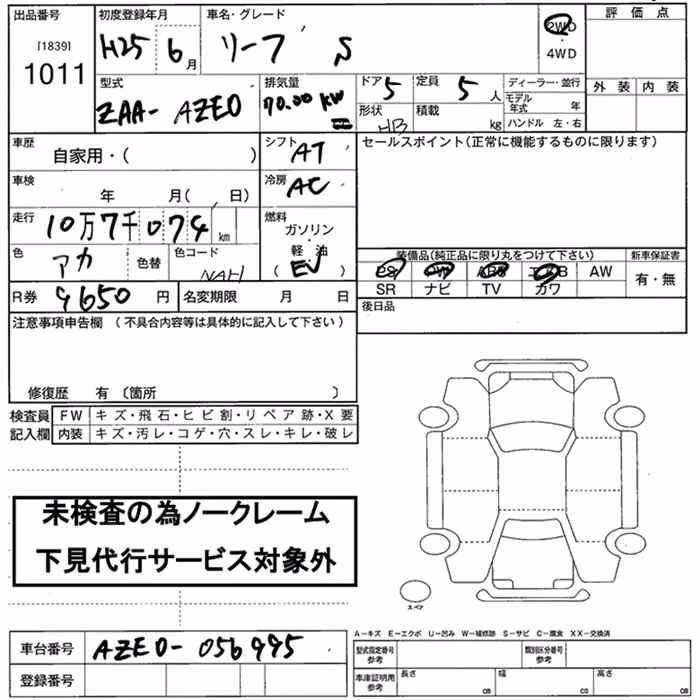 出品番号
［1839］
1011
初度登録年月
H25 6月
車名・グレード
リーフ S
2WD
・
4WD
評価点
外装 内装
型式
ZAA- AZE0
排気量
70.00 KW
ドア 5
形状 HB
定員 5人
積載 kg
ディーラー・並行
モデル年式 年
ハンドル 左・右
車歴
自家用・( )
シフト AT
セールスポイント(正常に機能するものに限ります)
車検
年 月( 日)
冷房 AC
走行
10万7千074km
燃料
ガソリン
・
軽油
( EV )
色
アカ
色替
色コード
NAH
装備品(純正品に限り丸をつけて下さい)
新車保証書
PS PW ABS エアB AW
SR ナビ TV カワ
有・無
R券 9650円
名変期限 月 日
後日品
注意事項申告欄 (不具合内容等は具体的に記入して下さい)
修復歴 有〔箇所 〕
検査員記入欄
FW キズ・飛石・ヒビ割・リペア跡・X要
内装 キズ・汚レ・コゲ・穴・スレ・キレ・破レ
未検査の為ノークレーム
下見代行サービス対象外
スペア
A-キズ E-エクボ U-凹み W-補修跡 S-サビ C-腐食 XX-交換済
車台番号 AZE0-056995
登録番号
型式指定番号
参考
類別区分番号
参考
車庫証明用
参考
長さ cm
幅 cm
高さ cm